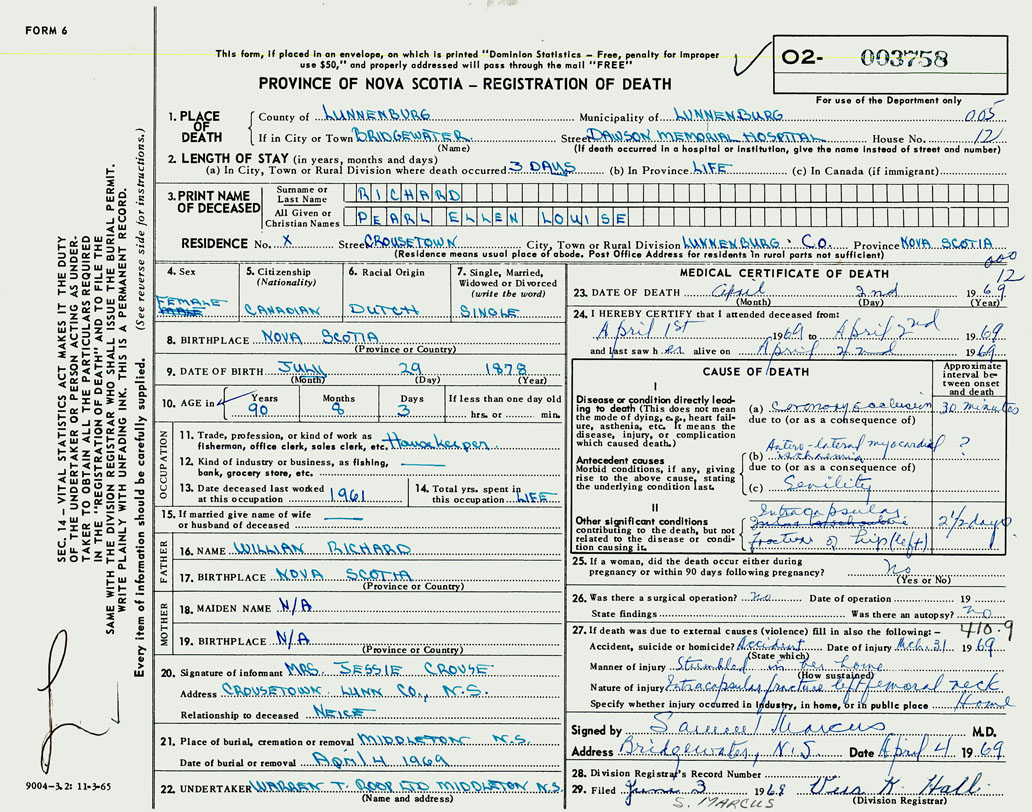 FORM 6
This form, if placed in an envelope, on which is printed "Dominion Statistics – Free, penalty for improper
use $50," and properly addressed will pass through the mail "FREE"
O2- 003758
For use of the Department only
PROVINCE OF NOVA SCOTIA – REGISTRATION OF DEATH
1. PLACE OF DEATH
County of LUNNENBURG Municipality of LUNNENBURG 005
If in City or Town BRIDGEWATER Street DAWSON MEMORIAL HOSPITAL House No. 12
(Name) (If death occurred in a hospital or institution, give the name instead of street and number)
2. LENGTH OF STAY (in years, months and days)
(a) In City, Town or Rural Division where death occurred 3 DAYS (b) In Province LIFE (c) In Canada (if immigrant)
3. PRINT NAME OF DECEASED
Surname or Last Name RICHARD
All Given or Christian Names PEARL ELLEN LOUISE
RESIDENCE No. X Street CROUSETOWN City, Town or Rural Division LUNNENBURG. CO. Province NOVA SCOTIA
(Residence means usual place of abode. Post Office Address for residents in rural parts not sufficient)
000
12
4. Sex FEMALE
5. Citizenship (Nationality) CANADIAN
6. Racial Origin DUTCH
7. Single, Married, Widowed or Divorced (write the word) SINGLE
8. BIRTHPLACE NOVA SCOTIA
(Province or Country)
9. DATE OF BIRTH JULY 29 1878
(Month) (Day) (Year)
10. AGE in Years 90 Months 8 Days 3 If less than one day old hrs. or min.
OCCUPATION
11. Trade, profession, or kind of work as fisherman, office clerk, sales clerk, etc. Housekeeper
12. Kind of industry or business, as fishing, bank, grocery store, etc.
13. Date deceased last worked at this occupation 1961
14. Total yrs. spent in this occupation LIFE
15. If married give name of wife or husband of deceased
FATHER
16. NAME WILLIAN RICHARD
17. BIRTHPLACE NOVA SCOTIA
(Province or Country)
MOTHER
18. MAIDEN NAME N/A
19. BIRTHPLACE N/A
(Province or Country)
20. Signature of informant MRS JESSIE CROUSE
Address CROUSETOWN LUNN CO., N.S.
Relationship to deceased NEICE
21. Place of burial, cremation or removal MIDDLETON N.S.
Date of burial or removal April 4 1969
22. UNDERTAKER WARREN T. ROOP LTD MIDDLETON N.S.
(Name and address)
MEDICAL CERTIFICATE OF DEATH
23. DATE OF DEATH April 2nd 1969
(Month) (Day) (Year)
24. I HEREBY CERTIFY that I attended deceased from:
April 1st 1969 to April 2nd 1969
and last saw her alive on April 2nd 1969
CAUSE OF DEATH
Approximate interval between onset and death
I
Disease or condition directly leading to death (This does not mean the mode of dying, e.g., heart failure, asthenia, etc. It means the disease, injury, or complication which caused death.)
(a) Coronary occlusion 30 minutes
due to (or as a consequence of)
Antecedent causes
Morbid conditions, if any, giving rise to the above cause, stating the underlying condition last.
Antero-lateral myocardial ?
(b) ischaemia
due to (or as a consequence of)
(c) Senility
II
Other significant conditions
contributing to the death, but not related to the disease or condition causing it.
Intracapsular
fracture of hip (left) 2½ days
25. If a woman, did the death occur either during pregnancy or within 90 days following pregnancy? No
(Yes or No)
26. Was there a surgical operation? No Date of operation 19
State findings Was there an autopsy? No
27. If death was due to external causes (violence) fill in also the following:– 410.9
Accident, suicide or homicide? Accident Date of injury Mch. 31 1969
(State which)
Manner of injury Stumbled in her home
(How sustained)
Nature of injury Intracapsular fracture left femoral neck
Specify whether injury occurred in industry, in home, or in public place Home
Signed by Samuel Marcus M.D.
Address Bridgewater, N.S Date April 4 1969
28. Division Registrar's Record Number
29. Filed 3 196 Hall
S. MARCUS (Division Registrar)
SEC. 14 – VITAL STATISTICS ACT MAKES IT THE DUTY
OF THE UNDERTAKER OR PERSON ACTING AS UNDERTAKER
TO OBTAIN ALL THE PARTICULARS REQUIRED
IN THE "REGISTRATION OF DEATH" AND TO FILE THE
SAME WITH THE DIVISION REGISTRAR WHO SHALL ISSUE THE BURIAL PERMIT.
WRITE PLAINLY WITH UNFADING INK. THIS IS A PERMANENT RECORD.
Every item of information should be carefully supplied. (See reverse side for instructions.)
9004-3.2: 11-3-65